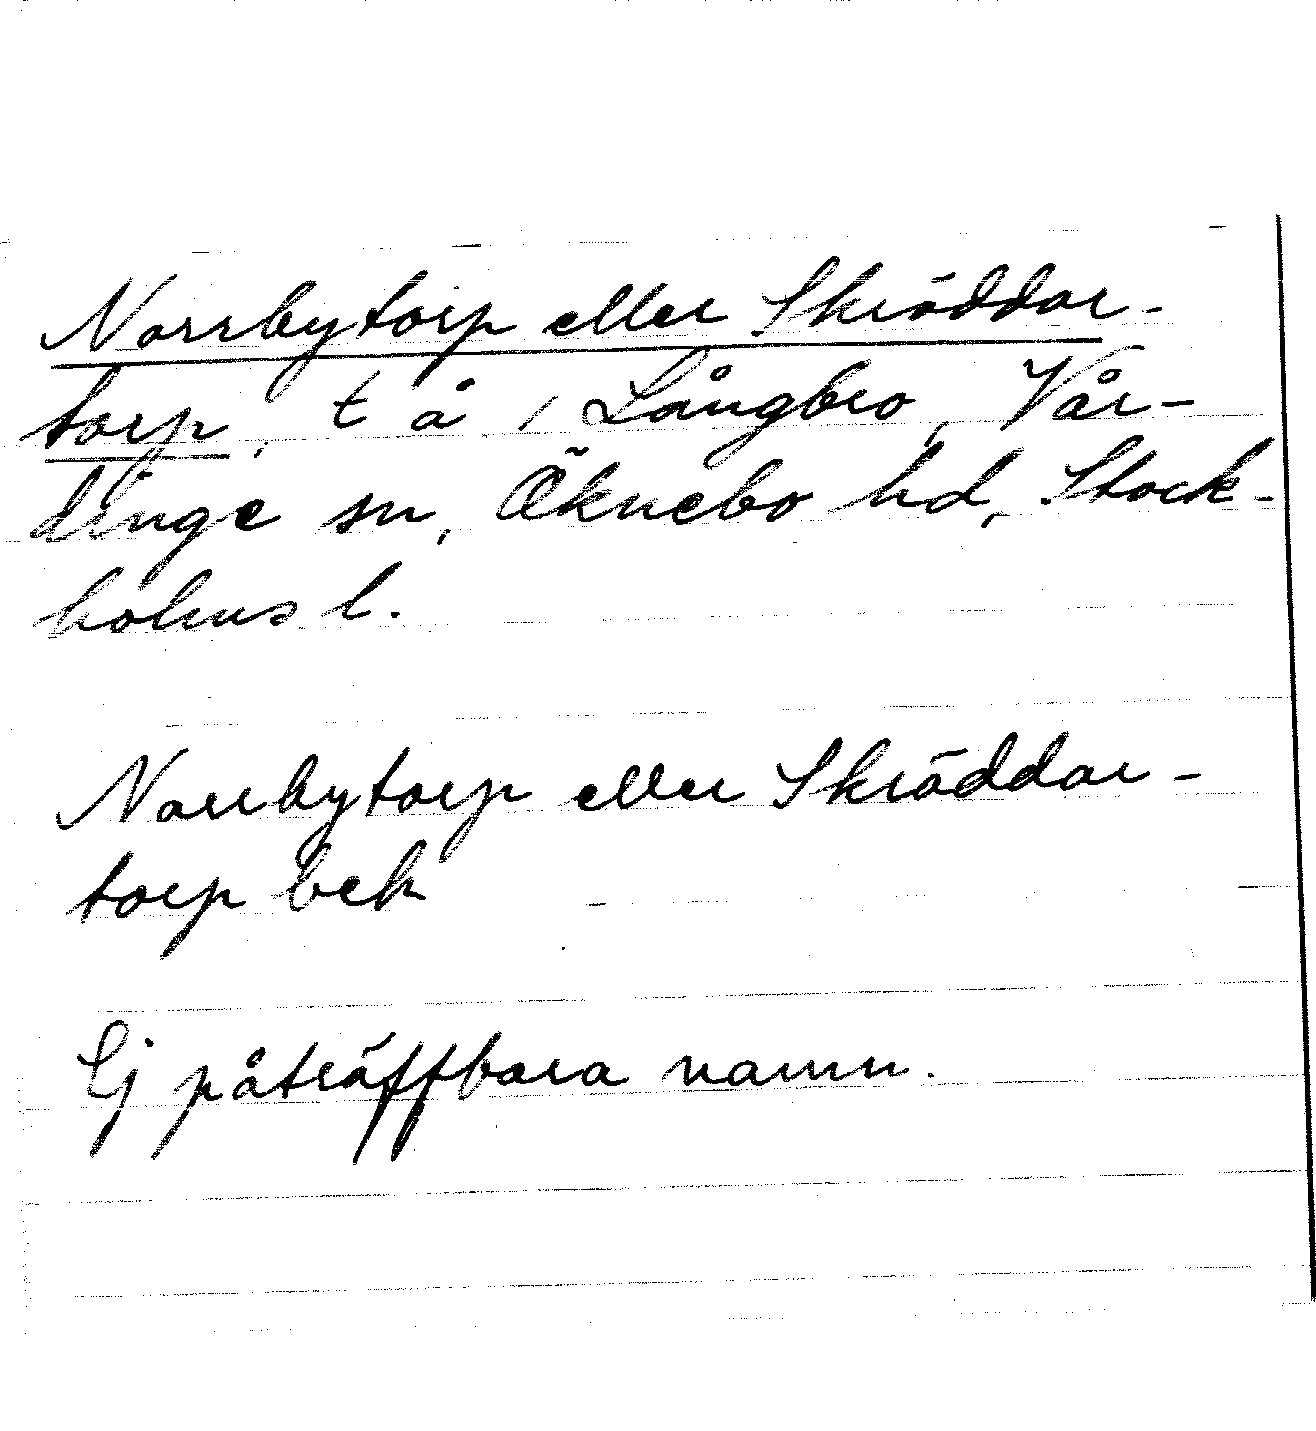 Norrbytorp eller Skräddar-
torp, t å / Långbro, Vår-
dinge sn, Öknebo hd, Stock-
holms l.
Norrbytorp eller Skräddar-
torp bek
Ej påträffbara namn.